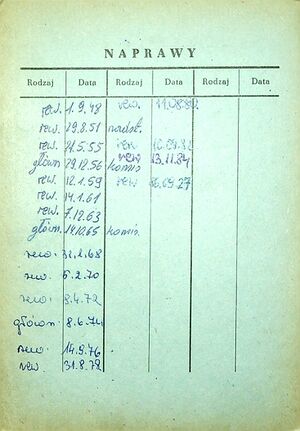 NAPRAWY
Rodzaj Data Rodzaj Data Rodzaj Data
rew. 1.9.48 rew. 11.08.80
rew. 29.8.51 nadst.
rew. 21.5.55 rew
główn 29.12.56 rew 13.11.84
komis
rew. 12.1.59 rew
rew. 14.1.61
rew. 7.12.63
główn. 14.12.65 komis.
rew. 2.68
rew. 5.2.70
rew. 8.4.72
główon. 8.6.74
rew. 14.9.76
rew. 31.8.78